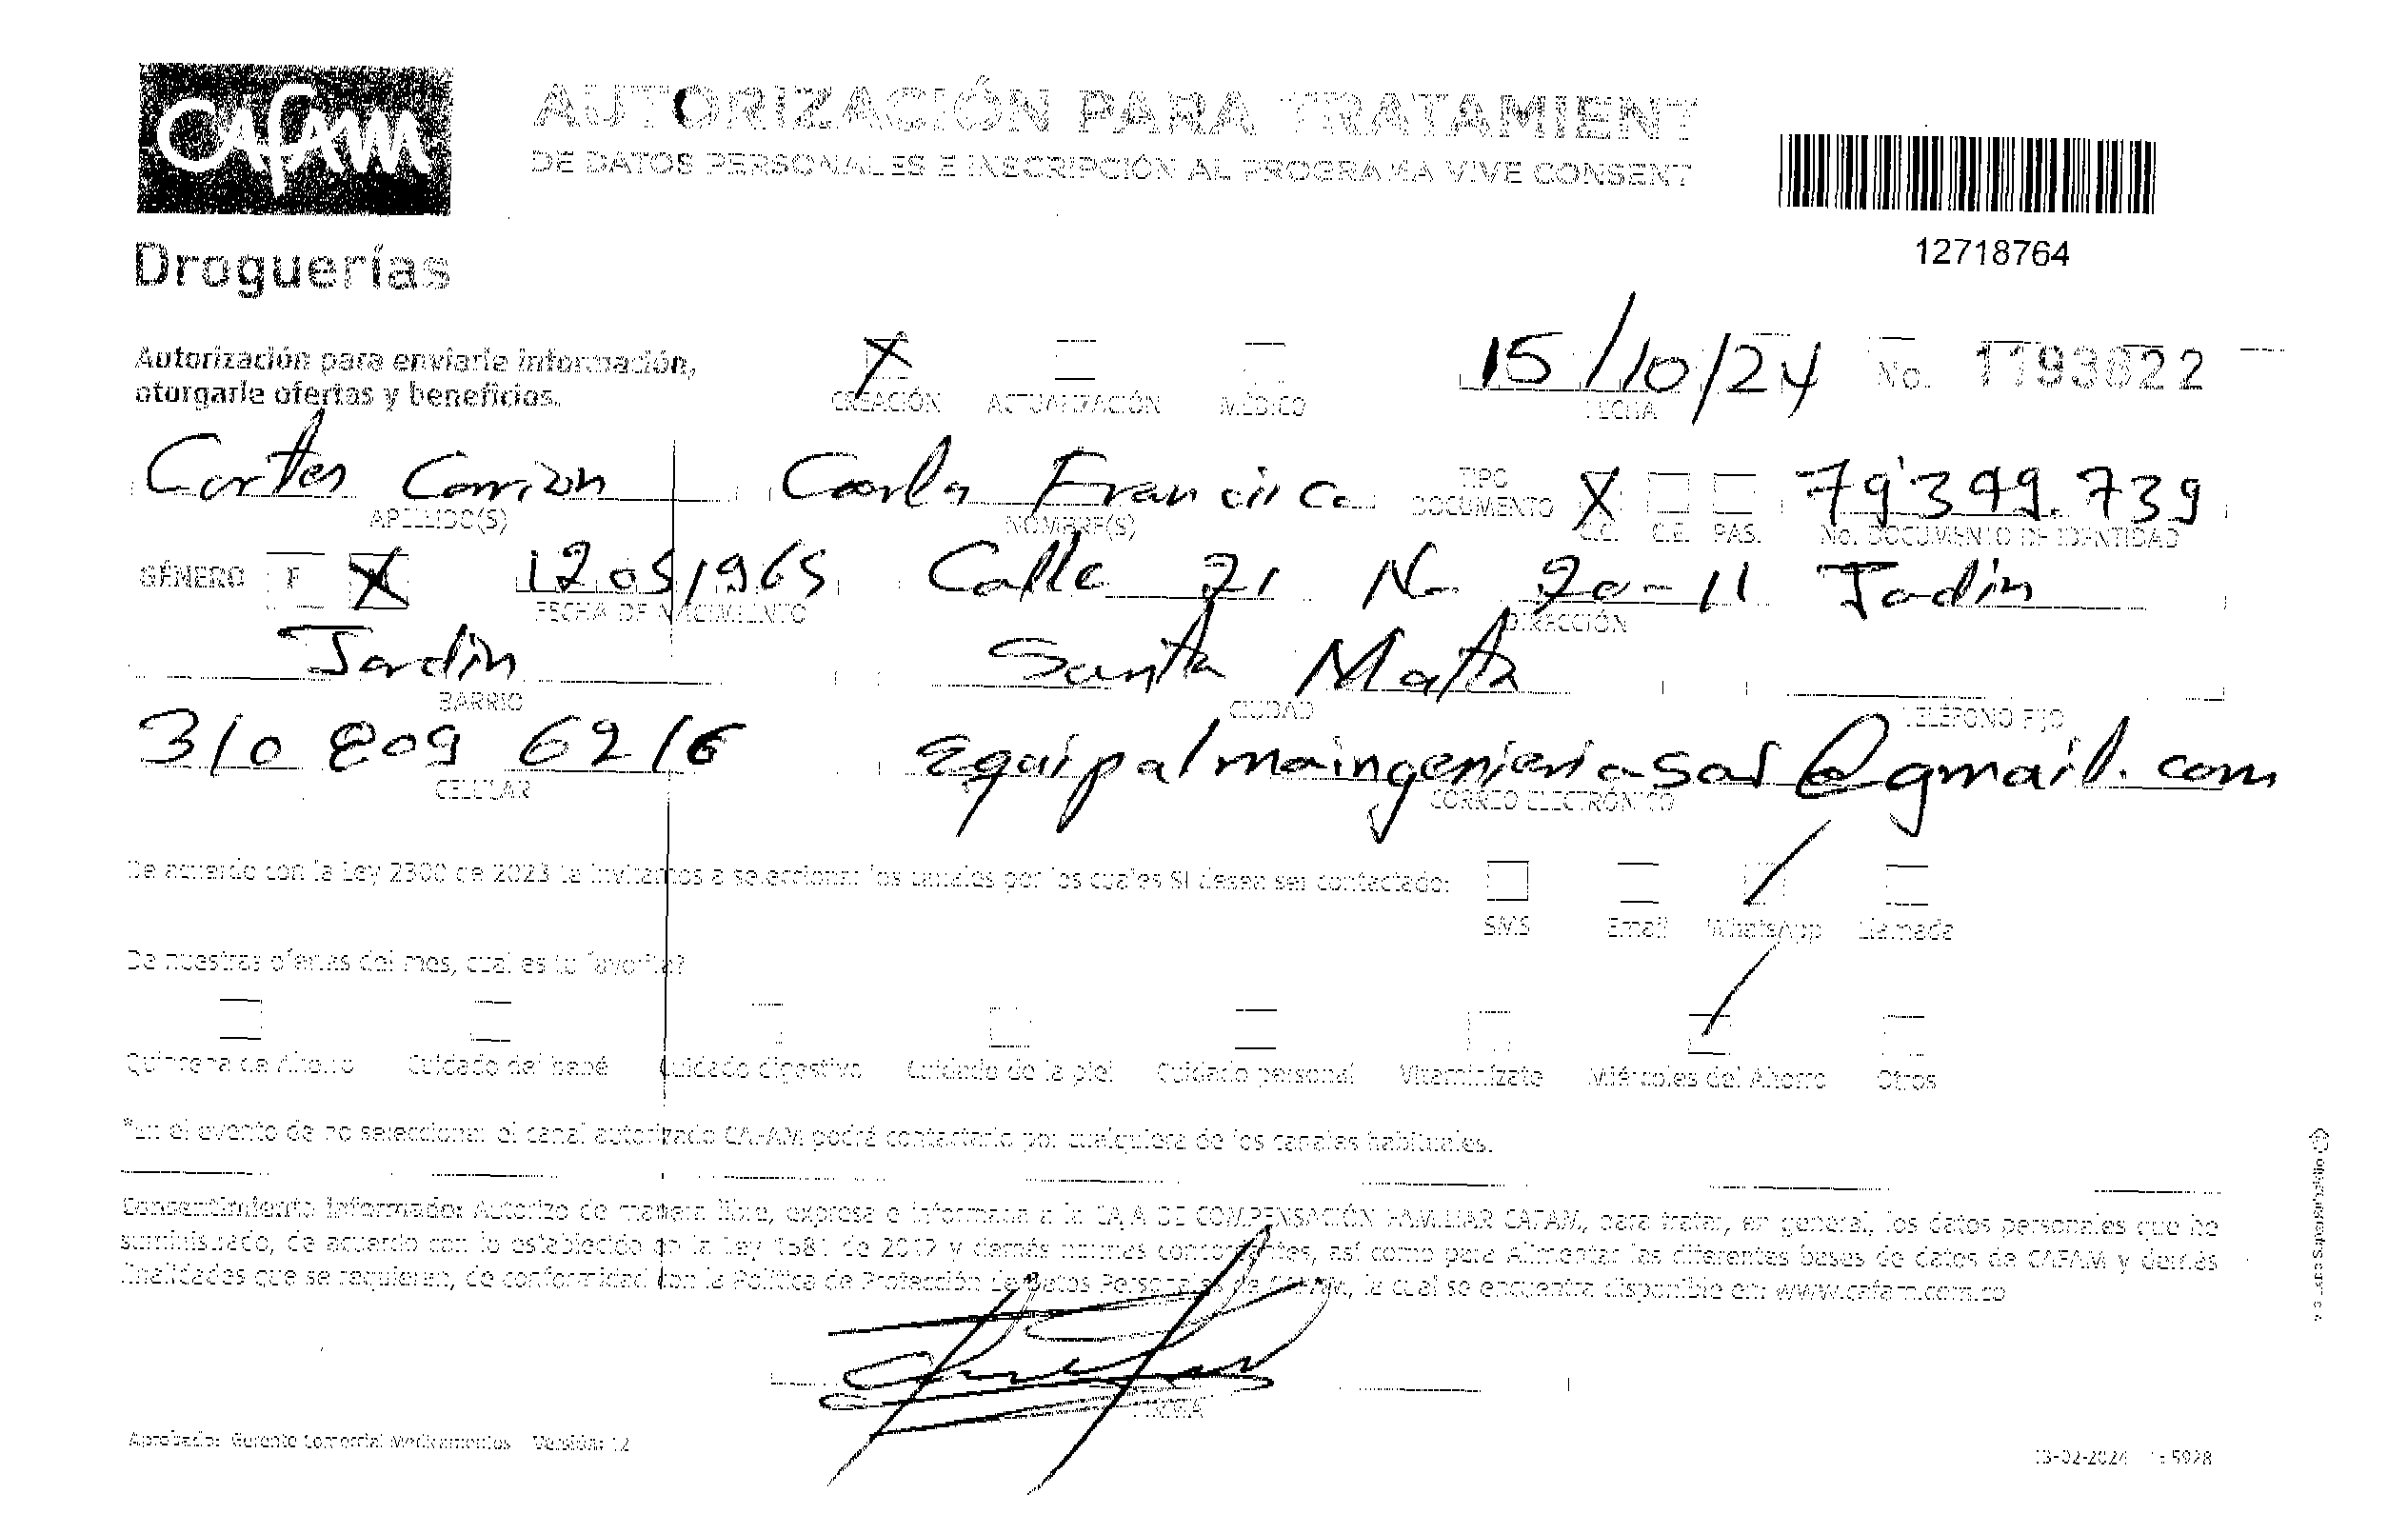 Cafam
AUTORIZACIÓN PARA TRATAMIENT
DE DATOS PERSONALES E INSCRIPCIÓN AL PROGRAMA VIVE CONSENT
12718764
Droguerías
Autorización para enviarle información,
otorgarle ofertas y beneficios.
CREACIÓN ACTUALIZACIÓN MÉDICO
15/10/24
FECHA
No. 1193822
Cortes Carrion
APELLIDO(S)
NOMBRE(S)
TIPO
DOCUMENTO X C.C. C.E. PAS.
79'399.739
No. DOCUMENTO DE IDENTIDAD
GÉNERO F X
12051965
FECHA DE NACIMIENTO
Calle 21 No 20-11 Jardin
DIRECCIÓN
Jardin
BARRIO
Santa Marta
CIUDAD
TELÉFONO FIJO
310 809 6216
CELULAR
equipalmaingenieriasas@gmail.com
CORREO ELECTRÓNICO
De acuerdo con la Ley 2300 de 2023 te invitamos a seleccionar los canales por los cuales SI desea ser contactado:
SMS Email WhatsApp Llamada
De nuestras ofertas del mes, cual es tu favorita?
Quincena de Ahorro Cuidado del bebé Cuidado digestivo Cuidado de la piel Cuidado personal Vitaminízate Miércoles del Ahorro Otros
*En el evento de no seleccionar el canal autorizado CAFAM podrá contactarlo por cualquiera de los canales habituales.
Consentimiento informado: Autorizo de manera libre, expresa e informada a la CAJA DE COMPENSACIÓN FAMILIAR CAFAM, para tratar, en general, los datos personales que he
suministrado, de acuerdo con lo establecido en la Ley 1581 de 2012 y demás normas concordantes, así como para Alimentar las diferentes bases de datos de CAFAM y demás
finalidades que se requieran, de conformidad con la Política de Protección de Datos Personales de CAFAM, la cual se encuentra disponible en: www.cafam.com.co
FIRMA
Aprobado: Gerente Comercial Medicamentos Versión: 12
13-02-2024